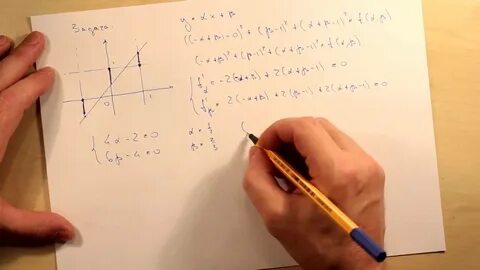 Задача:
y = αx + β
((-α+β)-0)² + (β-1)² + (α+β-1)² = f(α,β)
(-α+β)² + (β-1)² + (α+β-1)² = f(α,β)
f'α = -2(-α+β) + 2(α+β-1) = 0
f'β = 2(-α+β) + 2(β-1) + 2(α+β-1) = 0
4α - 2 = 0
6β - 4 = 0
α = 1/2
β = 2/3